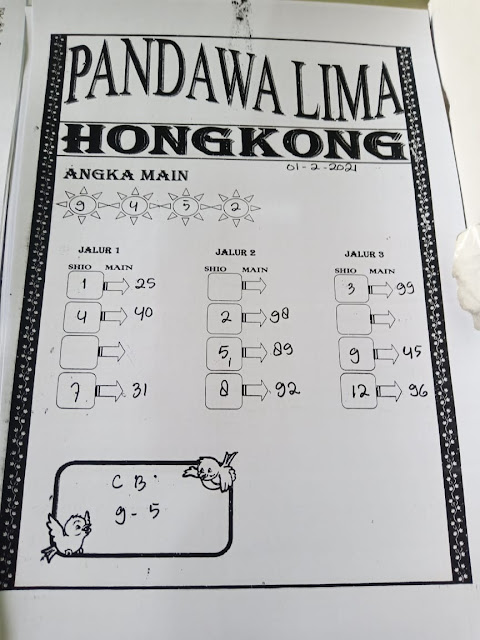 PANDAWA LIMA
HONGKONG
01-2-2021
ANGKA MAIN
9 4 5 2
JALUR 1 JALUR 2 JALUR 3
SHIO MAIN SHIO MAIN SHIO MAIN
1 25 3 99
4 40 2 98
5 89 9 45
7 31 8 92 12 96
C B
9 - 5